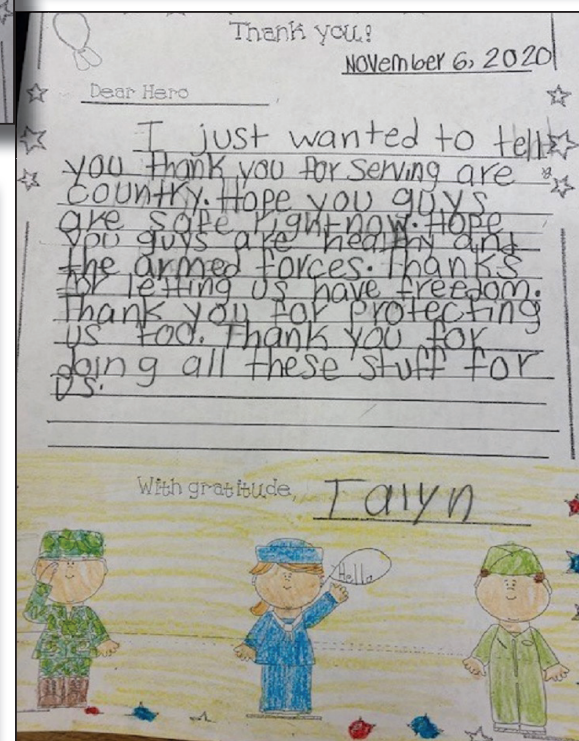 Thank you!
November 6, 2020
Dear Hero
I just wanted to tell
you thank you for serving are
country. Hope you guys
are safe right now. Hope
you guys are healthy and
the armed forces. Thanks
for letting us have freedom.
Thank you for protecting
us too. Thank you for
doing all these stuff for
us.
With gratitude,
Talyn
Hello